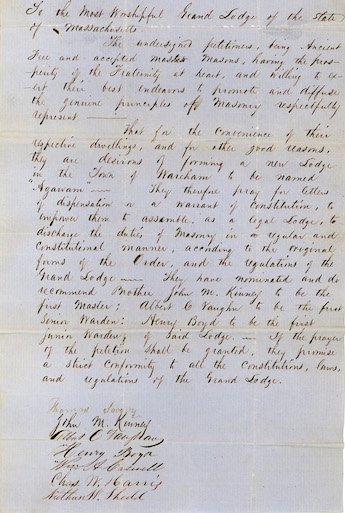 To the Most Worshipful Grand Lodge of the State
of Massachusetts
The undersigned petitioners, being Ancient
Free and accepted Master Masons, having the pros-
perity of the Fraternity at heart, and willing to ex-
ert their best endeavors to promote and diffuse
the genuine principles of Masonry respectfully
represent ——
That for the convenience of their
respective dwellings, and for other good reasons,
they are desirous of forming a new Lodge
in the Town of Wareham to be named
"Agawam" — They therefore pray for letters
of dispensation or a warrant of Constitution, to
empower them to assemble, as a legal Lodge, to
discharge the duties of Masonry in a regular and
Constitutional manner, according to the original
forms of the Order, and the regulations of the
Grand Lodge — They have nominated and do
recommend Brother John M. Kinney to be the
first Master; Albert C Vaughn to be the first
Senior Warden; Henry Boyd to be the first
junior Warden, of Said Lodge. — If the prayer
of the petition shall be granted, they promise
a Strict Conformity to all the Constitutions, laws,
and regulations of the Grand Lodge.
Thomas Savery
John M. Kinney
Vaughan
Henry Boyd
Chas W. Harris